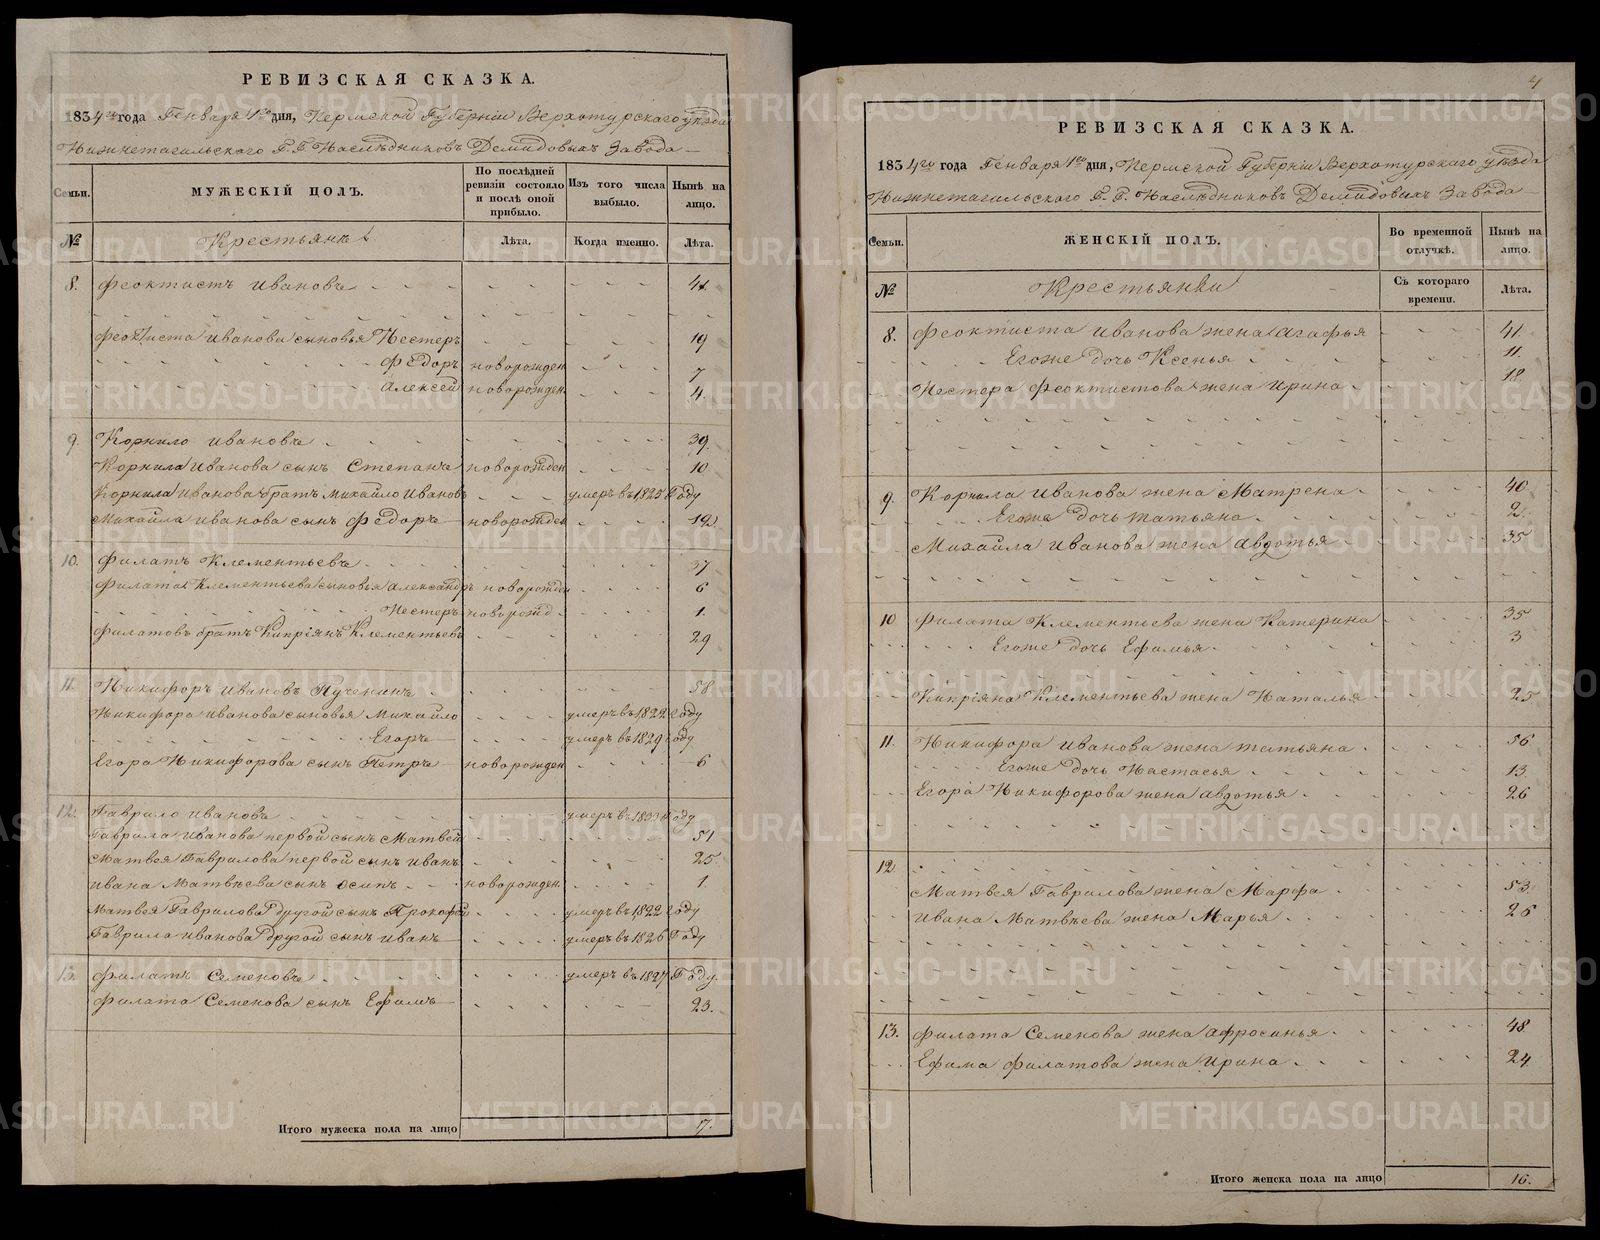 РЕВИЗСКАЯ СКАЗКА.
1834го года Генваря 1го дня, Пермской Губерніи Верхотурского уѣзда
Нижнетагильского Г. Г. Наслѣдниковъ Демидовыхъ Завода
Семьи.
МУЖЕСКІЙ ПОЛЪ.
По послѣдней ревизіи состояло и послѣ оной прибыло.
Изъ того числа выбыло.
Нынѣ на лицо.
№
Крестьяне
Лѣта.
Когда именно.
Лѣта.
8. Феоктистъ Ивановъ 41
Феоктиста Иванова сыновья Нестеръ 19
Федоръ новорожден 7
Алексей новорожден 4.
9. Корнило Ивановъ 39.
Корнила Иванова сынъ Степанъ новорожден 10
Корнила Иванова братъ Михайло Ивановъ умеръ въ 1825 Году
Михайла Иванова сынъ Федоръ новорожден 12
10. Филатъ Клементьевъ 37
Филата Клементьева сыновья Александръ новорожден 6
Нестеръ новорожд 1.
Филатовъ братъ Кипріянъ Клементьевъ 29
11. Никифоръ Ивановъ 58.
Никифора Иванова сыновья Михайло умеръ въ 1822 Году
Егоръ умеръ въ 1829 Году
Егора Никифорова сынъ Петръ новорожден 6
12. Гаврило Ивановъ умеръ въ 1833 Году
Гаврила Иванова первой сынъ Матвей 51
Матвея Гаврилова первой сынъ Иванъ 25.
Ивана Матвѣева сынъ Осипъ новорожден. 1.
Матвея Гаврилова другой сынъ Прокофей умеръ въ 1822 Году
Гаврила Иванова другой сынъ Иванъ умеръ въ 1826 Году
13. Филатъ Семеновъ умеръ въ 1827 Году.
Филата Семенова сынъ Ефимъ 23.
Итого мужеска пола на лицо 17.
4
РЕВИЗСКАЯ СКАЗКА.
1834го года Генваря 1го дня, Пермской Губерніи Верхотурского уѣзда
Нижнетагильского Г. Г. Наслѣдниковъ Демидовыхъ Завода
Семьи.
ЖЕНСКІЙ ПОЛЪ.
Во временной отлучкѣ.
Нынѣ на лицо.
№
Крестьянки
Съ котораго времени.
Лѣта.
8. Феоктиста Иванова жена Агафья 41
Егоже дочь Ксенья 11.
Нестера Феоктистова жена Ирина 18
9. Корнила Иванова жена Матрена 40
Егоже дочь Татьяна 2.
Михайла Иванова жена Авдотья 35
10 Филата Клементьева жена Катерина 35
Егоже дочь Ефимья 3
Кипріяна Клементьева жена Наталья 25
11. Никифора Иванова жена Татьяна 56
Егоже дочь Настасья 13.
Егора Никифорова жена Авдотья 26
12
Матвея Гаврилова жена Марфа 53.
Ивана Матвѣева жена Марья 26
13. Филата Семенова жена Афросинья 48.
Ефима Филатова жена Ирина 24
Итого женска пола на лицо 16.
METRIKI.GASO-URAL.RU